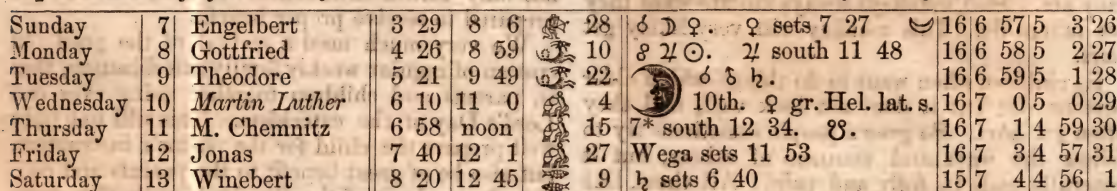 Sunday 7 Engelbert 3 29 8 6 28 ☌ ☽ ♀. ♀ sets 7 27 16 6 57 5 3 26
Monday 8 Gottfried 4 26 8 59 10 ☍ ♃ ☉. ♃ south 11 48 16 6 58 5 2 27
Tuesday 9 Theodore 5 21 9 49 22 ☌ ♄. 16 6 59 5 1 28
Wednesday 10 Martin Luther 6 10 11 0 4 10th. ♀ gr. Hel. lat. s. 16 7 0 5 0 29
Thursday 11 M. Chemnitz 6 58 noon 15 7* south 12 34. ☋. 16 7 1 4 59 30
Friday 12 Jonas 7 40 12 1 27 Wega sets 11 53 16 7 3 4 57 31
Saturday 13 Winebert 8 20 12 45 9 ♄ sets 6 40 15 7 4 4 56 1